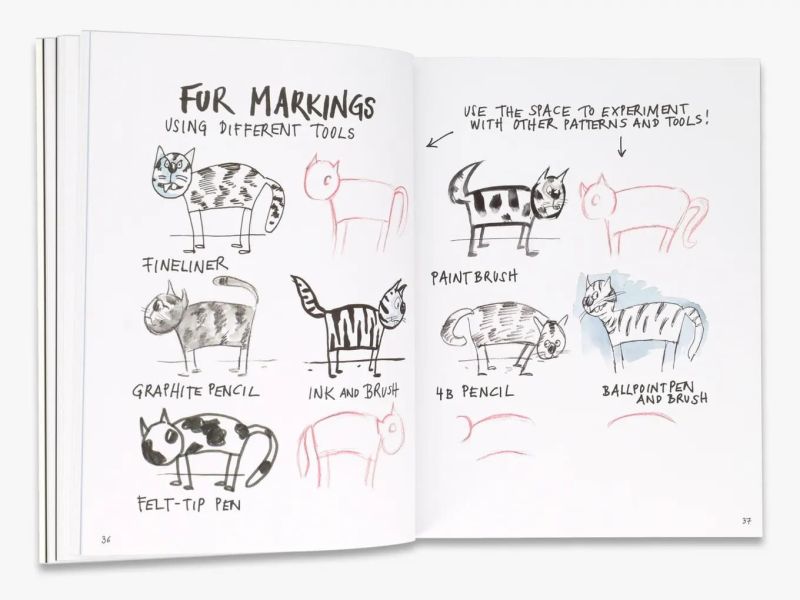 FUR MARKINGS
USING DIFFERENT TOOLS
FINELINER
GRAPHITE PENCIL
INK AND BRUSH
FELT-TIP PEN
36
USE THE SPACE TO EXPERIMENT
WITH OTHER PATTERNS AND TOOLS!
PAINTBRUSH
4B PENCIL
BALLPOINT PEN
AND BRUSH
37